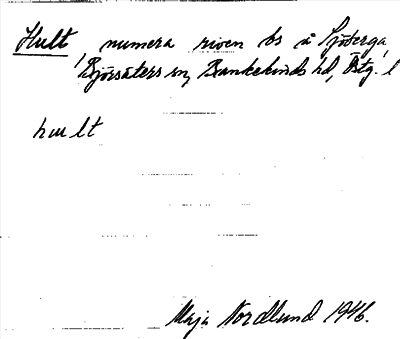 Hult, numera riven bs å Sjöberga,
Björsäters sn, Bankekinds hd, Östg. l
hult
Maja Nordlund 1946.